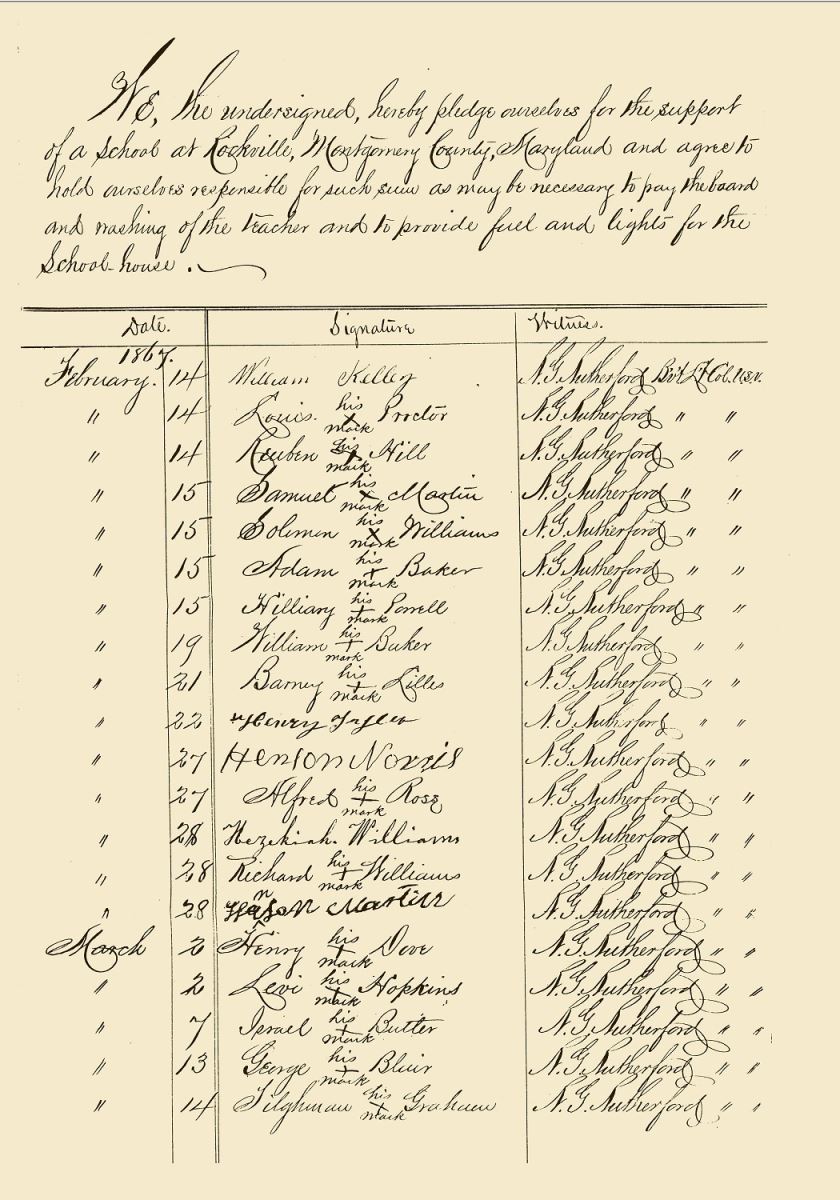 We, the undersigned, hereby pledge ourselves for the support
of a School at Rockville, Montgomery County, Maryland and agree to
hold ourselves responsible for such sum as may be necessary to pay the board
and washing of the teacher and to provide fuel and lights for the
School-house.
Date. Signature Witness.
1867.
February. 14 William Kelley N.G. Rutherford Bvt Lt Col. U.S.V.
" 14 Louis his X mark Proctor N.G. Rutherford " "
" 14 Reuben his X mark Hill N.G. Rutherford " "
" 15 Samuel his X mark Martin N.G. Rutherford " "
" 15 Solomon his X mark Williams N.G. Rutherford " "
" 15 Adam his + mark Baker N.G. Rutherford " "
" 15 Hilliary his + mark Powell N.G. Rutherford " "
" 19 William his + mark Baker N.G. Rutherford " "
" 21 Barney his + mark Lilles N.G. Rutherford " "
" 22 Henry N.G. Rutherford " "
" 27 Henson Norris N.G. Rutherford " "
" 27 Alfred his + mark Ross N.G. Rutherford " "
" 28 Hezekiah. Williams N.G. Rutherford " "
" 28 Richard his + mark Williams N.G. Rutherford " "
" 28 Martin N.G. Rutherford " "
March 2 Henry his + mark Dove N.G. Rutherford " "
" 2 Levi his + mark Hopkins N.G. Rutherford " "
" 7 Israel his + mark Butler N.G. Rutherford " "
" 13 George his + mark Blair N.G. Rutherford " "
" 14 Tilghman his + mark Graham N.G. Rutherford " "